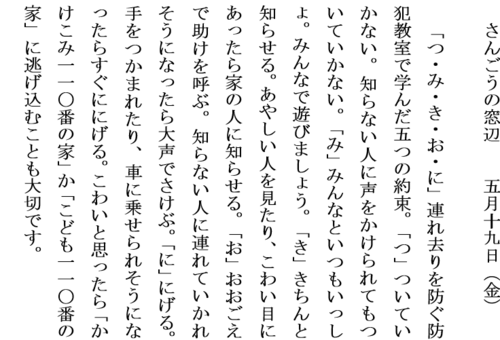 さんごうの窓辺　　五月十九日（金）
「つ・み・き・お・に」連れ去りを防ぐ防
犯教室で学んだ五つの約束。「つ」ついてい
かない。知らない人に声をかけられてもつ
いていかない。「み」みんなといつもいっし
ょ。みんなで遊びましょう。「き」きちんと
知らせる。あやしい人を見たり、こわい目に
あったら家の人に知らせる。「お」おおごえ
で助けを呼ぶ。知らない人に連れていかれ
そうになったら大声でさけぶ。「に」にげる。
手をつかまれたり、車に乗せられそうにな
ったらすぐににげる。こわいと思ったら「か
けこみ一一〇番の家」か「こども一一〇番の
家」に逃げ込むことも大切です。